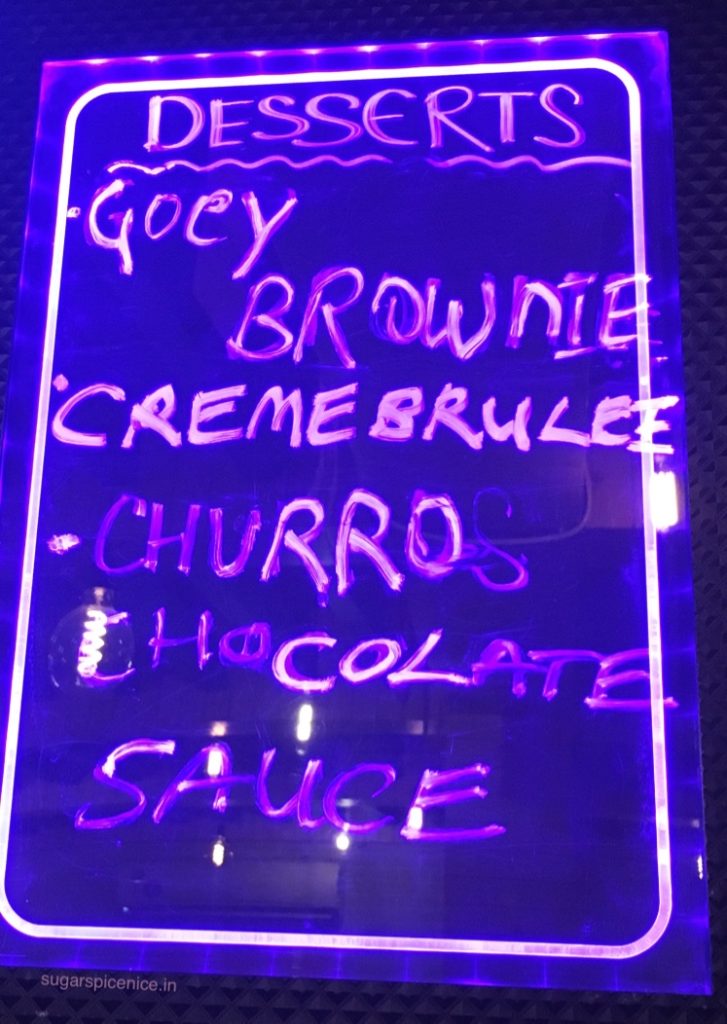 DESSERTS
· Goey
BROWNIE
· CREME BRULEE
· CHURROS
CHOCOLATE
SAUCE
sugarspicenice.in